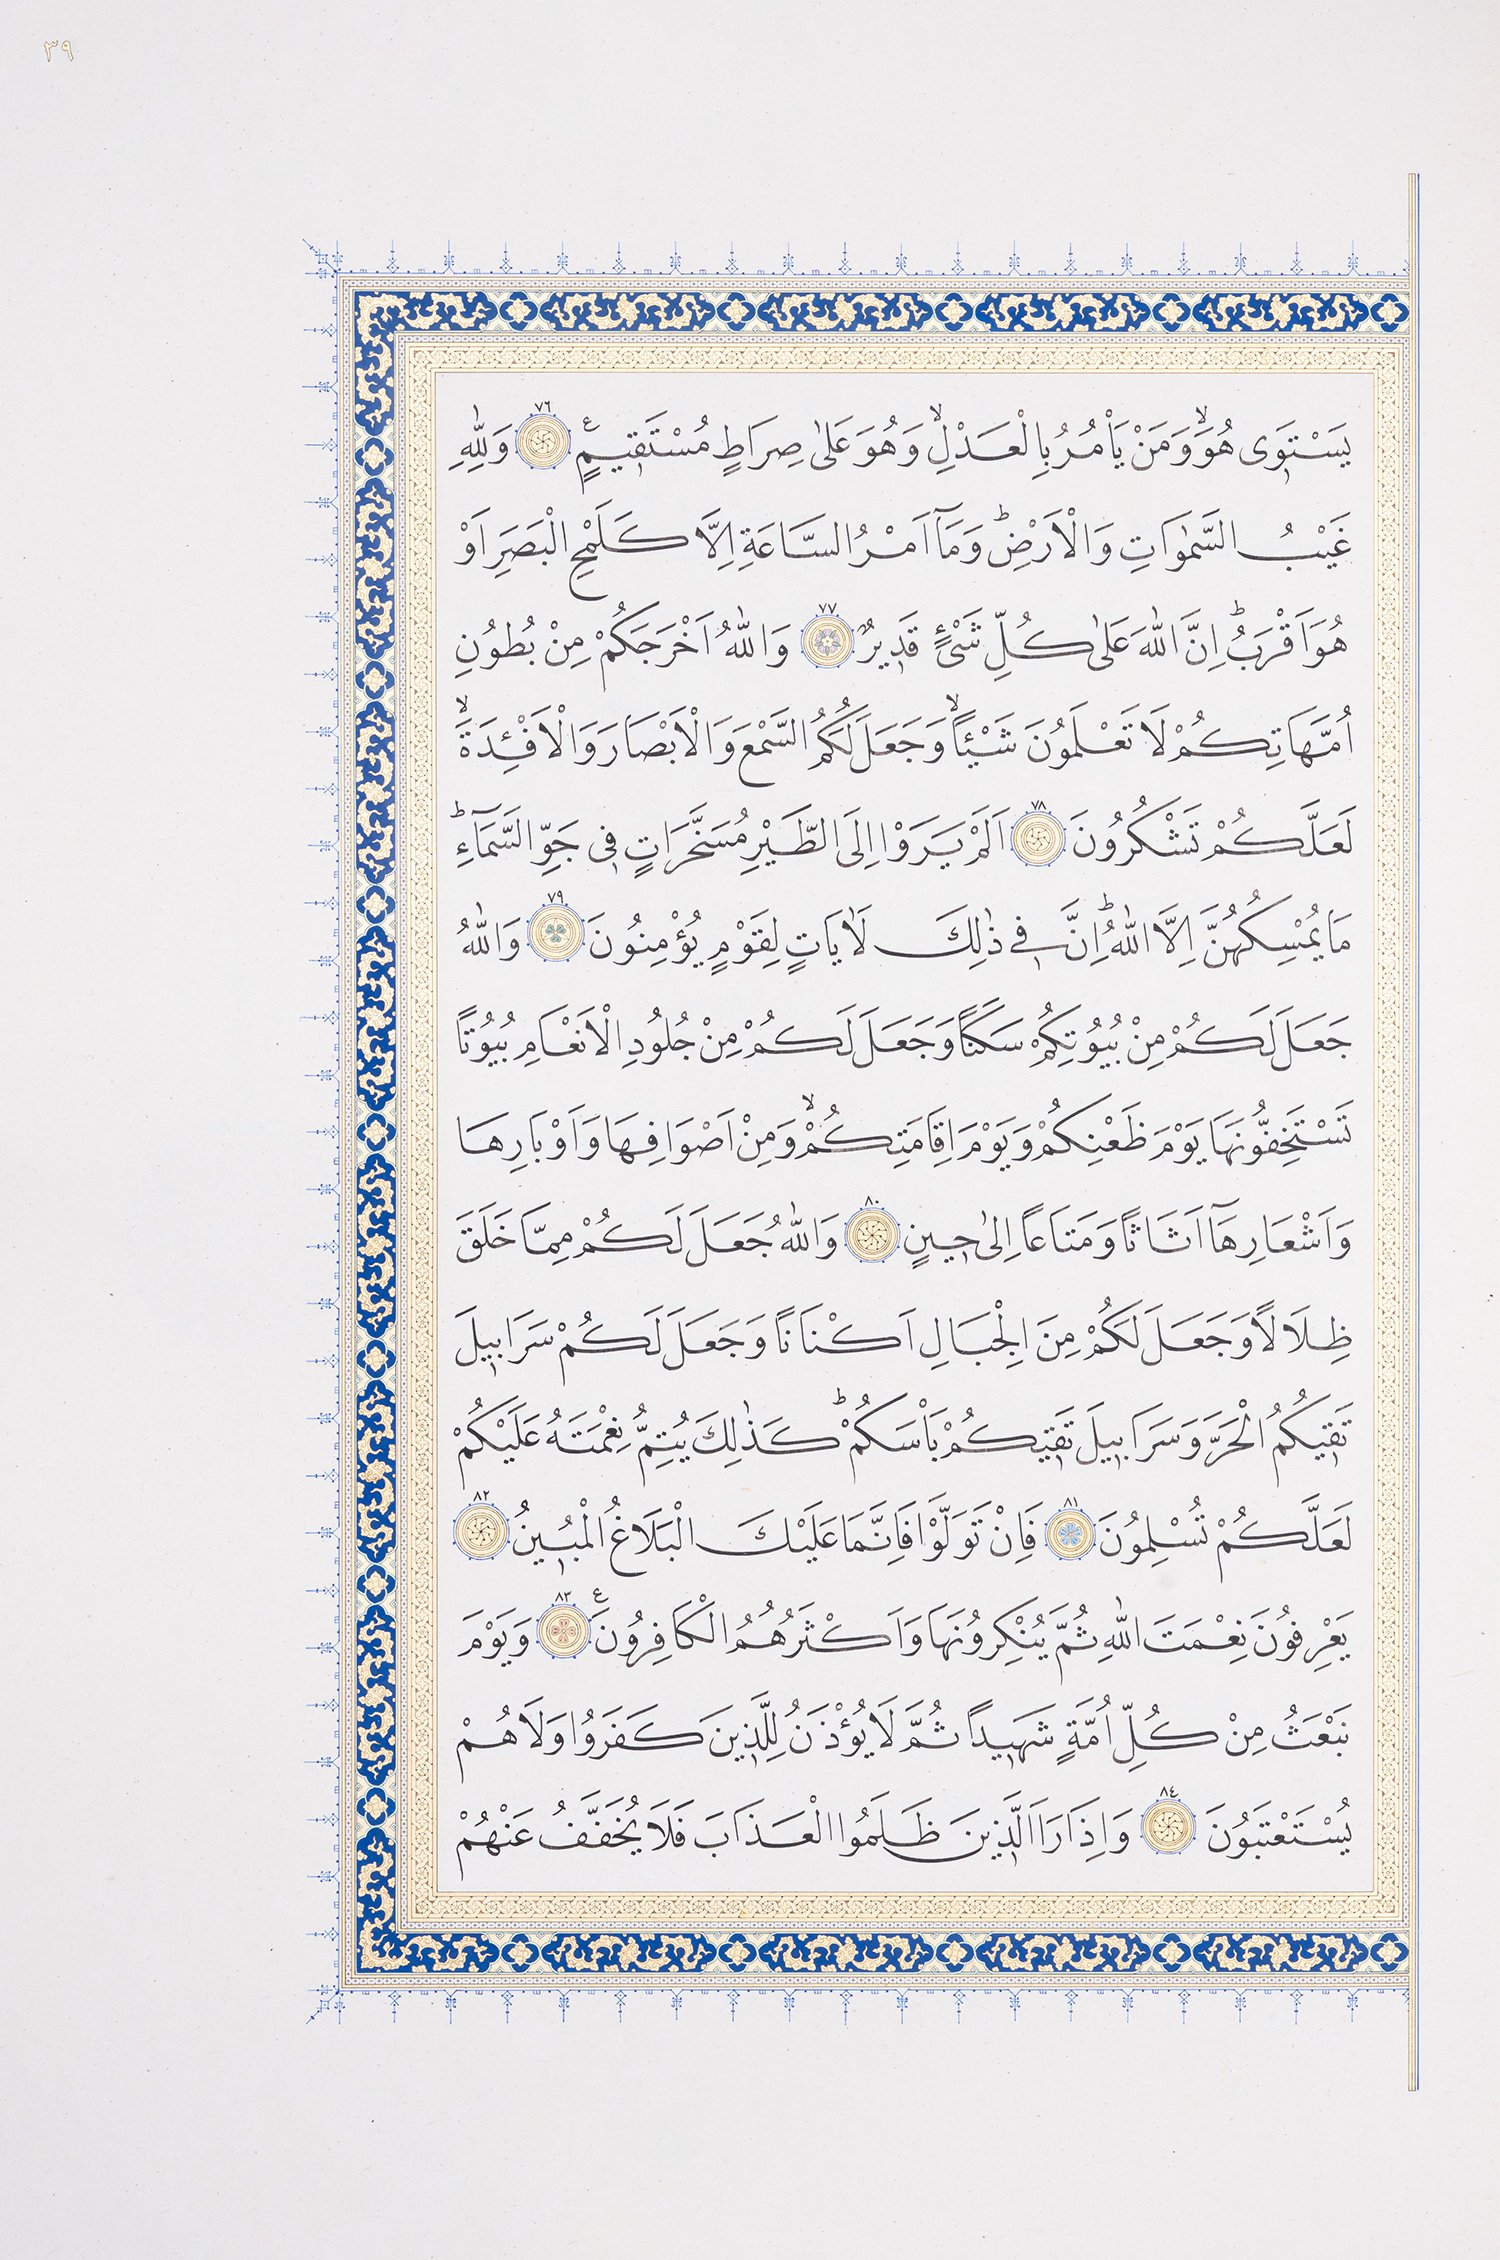 ٣٩
يَسْتَوِى هُوَۙ وَمَنْ يَاْمُرُ بِالْعَدْلِۙ وَهُوَ عَلٰى صِرَاطٍ مُسْتَقِيمٍ ع ٧٦ وَلِلّٰهِ
غَيْبُ السَّمٰوَاتِ وَالْاَرْضِۜ وَمَٓا اَمْرُ السَّاعَةِ اِلَّا كَلَمْحِ الْبَصَرِ اَوْ
هُوَ اَقْرَبُۜ اِنَّ اللّٰهَ عَلٰى كُلِّ شَىْءٍ قَدِيرٌ ٧٧ وَاللّٰهُ اَخْرَجَكُمْ مِنْ بُطُونِ
اُمَّهَاتِكُمْ لَا تَعْلَمُونَ شَيْـًٔاۙ وَجَعَلَ لَكُمُ السَّمْعَ وَالْاَبْصَارَ وَالْاَفْـِٔدَةَۙ
لَعَلَّكُمْ تَشْكُرُونَ ٧٨ اَلَمْ يَرَوْا اِلَى الطَّيْرِ مُسَخَّرَاتٍ فِى جَوِّ السَّمَٓاءِۜ
مَا يُمْسِكُهُنَّ اِلَّا اللّٰهُۜ اِنَّ فِى ذٰلِكَ لَاٰيَاتٍ لِقَوْمٍ يُؤْمِنُونَ ٧٩ وَاللّٰهُ
جَعَلَ لَكُمْ مِنْ بُيُوتِكُمْ سَكَنًا وَجَعَلَ لَكُمْ مِنْ جُلُودِ الْاَنْعَامِ بُيُوتًا
تَسْتَخِفُّونَهَا يَوْمَ ظَعْنِكُمْ وَيَوْمَ اِقَامَتِكُمْۙ وَمِنْ اَصْوَافِهَا وَاَوْبَارِهَا
وَاَشْعَارِهَٓا اَثَاثًا وَمَتَاعًا اِلٰى حِينٍ ٨٠ وَاللّٰهُ جَعَلَ لَكُمْ مِمَّا خَلَقَ
ظِلَالًا وَجَعَلَ لَكُمْ مِنَ الْجِبَالِ اَكْنَانًا وَجَعَلَ لَكُمْ سَرَابِيلَ
تَقِيكُمُ الْحَرَّ وَسَرَابِيلَ تَقِيكُمْ بَاْسَكُمْۜ كَذٰلِكَ يُتِمُّ نِعْمَتَهُ عَلَيْكُمْ
لَعَلَّكُمْ تُسْلِمُونَ ٨١ فَاِنْ تَوَلَّوْا فَاِنَّمَا عَلَيْكَ الْبَلَاغُ الْمُبِينُ ٨٢
يَعْرِفُونَ نِعْمَتَ اللّٰهِ ثُمَّ يُنْكِرُونَهَا وَاَكْثَرُهُمُ الْكَافِرُونَ ع ٨٣ وَيَوْمَ
نَبْعَثُ مِنْ كُلِّ اُمَّةٍ شَهِيدًا ثُمَّ لَا يُؤْذَنُ لِلَّذِينَ كَفَرُوا وَلَا هُمْ
يُسْتَعْتَبُونَ ٨٤ وَاِذَا رَاَ الَّذِينَ ظَلَمُوا الْعَذَابَ فَلَا يُخَفَّفُ عَنْهُمْ